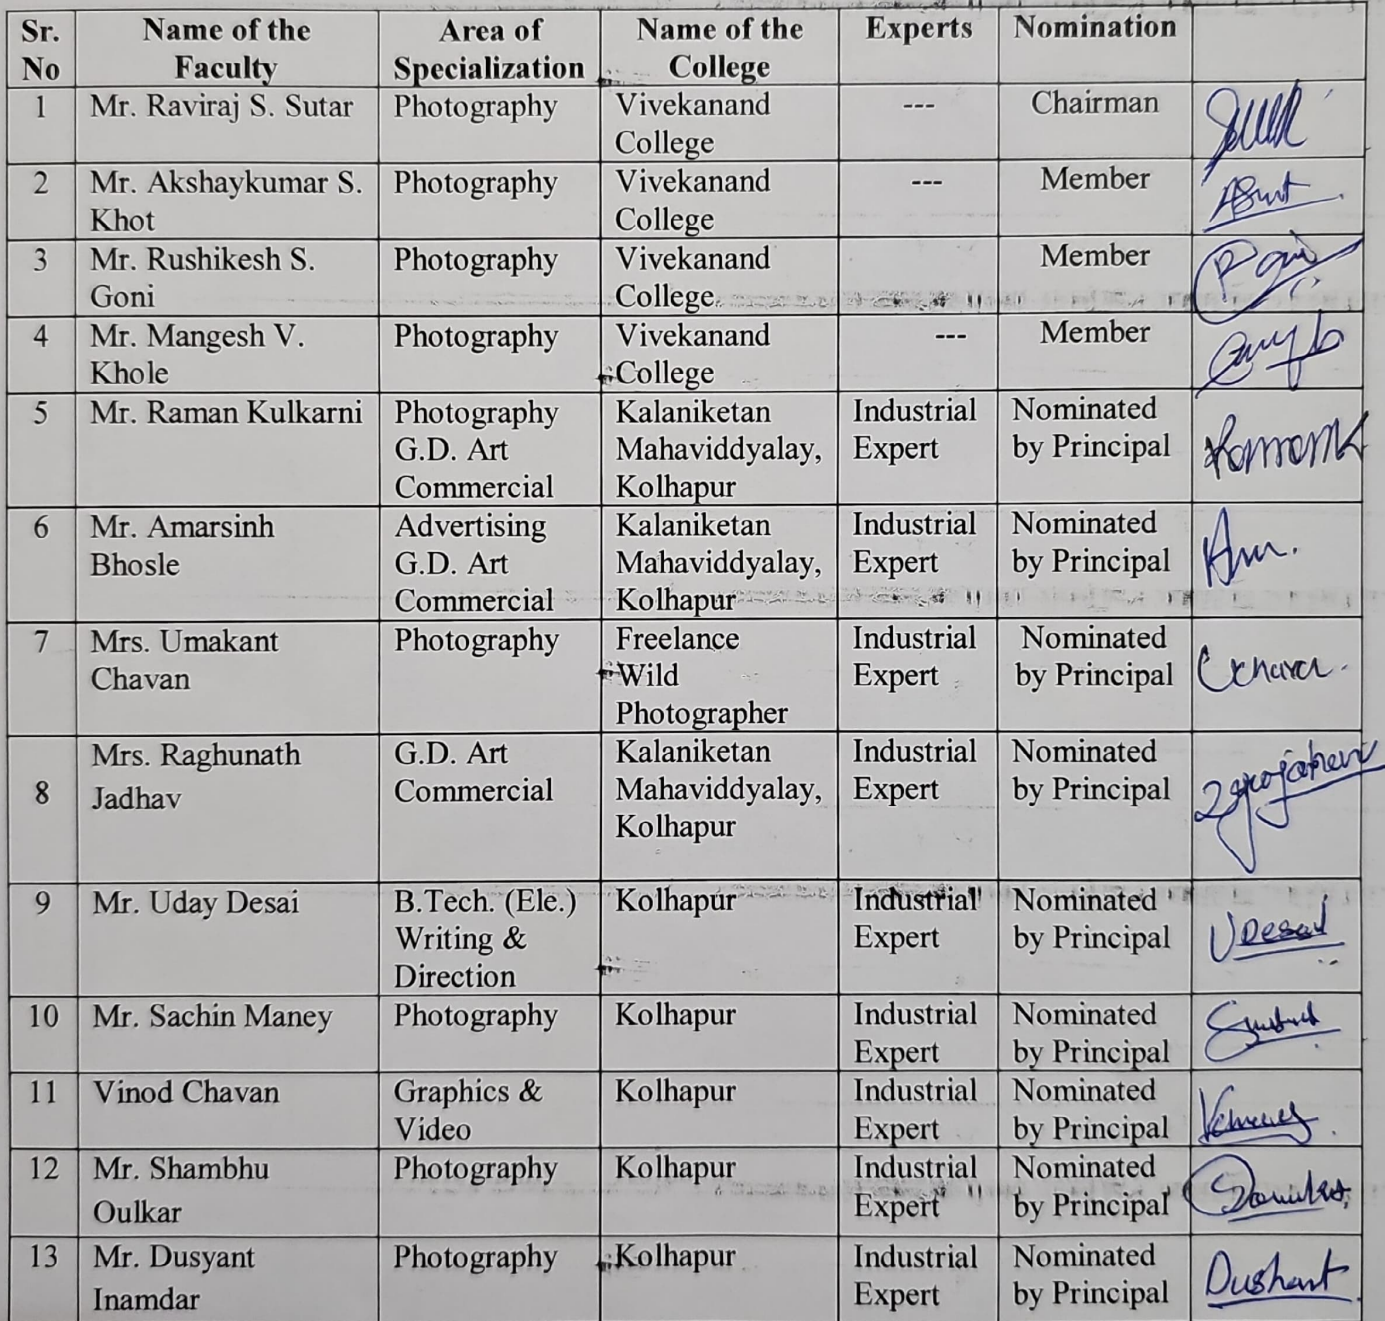 Sr. No | Name of the Faculty | Area of Specialization | Name of the College | Experts | Nomination
1 | Mr. Raviraj S. Sutar | Photography | Vivekanand College | --- | Chairman
2 | Mr. Akshaykumar S. Khot | Photography | Vivekanand College | --- | Member
3 | Mr. Rushikesh S. Goni | Photography | Vivekanand College. | | Member
4 | Mr. Mangesh V. Khole | Photography | Vivekanand College | --- | Member
5 | Mr. Raman Kulkarni | Photography G.D. Art Commercial | Kalaniketan Mahaviddyalay, Kolhapur | Industrial Expert | Nominated by Principal
6 | Mr. Amarsinh Bhosle | Advertising G.D. Art Commercial | Kalaniketan Mahaviddyalay, Kolhapur | Industrial Expert | Nominated by Principal
7 | Mrs. Umakant Chavan | Photography | Freelance Wild Photographer | Industrial Expert | Nominated by Principal
8 | Mrs. Raghunath Jadhav | G.D. Art Commercial | Kalaniketan Mahaviddyalay, Kolhapur | Industrial Expert | Nominated by Principal
9 | Mr. Uday Desai | B.Tech. (Ele.) Writing & Direction | Kolhapur | Industrial Expert | Nominated by Principal | UDesai
10 | Mr. Sachin Maney | Photography | Kolhapur | Industrial Expert | Nominated by Principal
11 | Vinod Chavan | Graphics & Video | Kolhapur | Industrial Expert | Nominated by Principal
12 | Mr. Shambhu Oulkar | Photography | Kolhapur | Industrial Expert | Nominated by Principal
13 | Mr. Dusyant Inamdar | Photography | Kolhapur | Industrial Expert | Nominated by Principal | Dushant